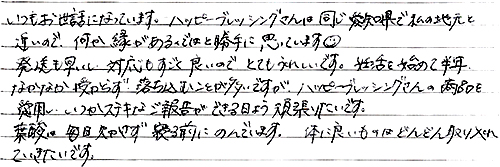 いつもお世話になっています。ハッピーブレッシングさんは同じ愛知県で私の地元と
近いので、何か縁があるのではと勝手に思っています☺
発送も早いし対応もすごく良いのでとてもうれしいです。妊活を始めて半年、
なかなか授からず落ち込むことが多いですが、ハッピーブレッシングさんの商品を
愛用し、いつかステキなご報告ができる日まで頑張りたいです。
葉酸は毎日欠かさず寝る前にのんでいます。体に良いものはどんどん取り入れ
ていきたいです。